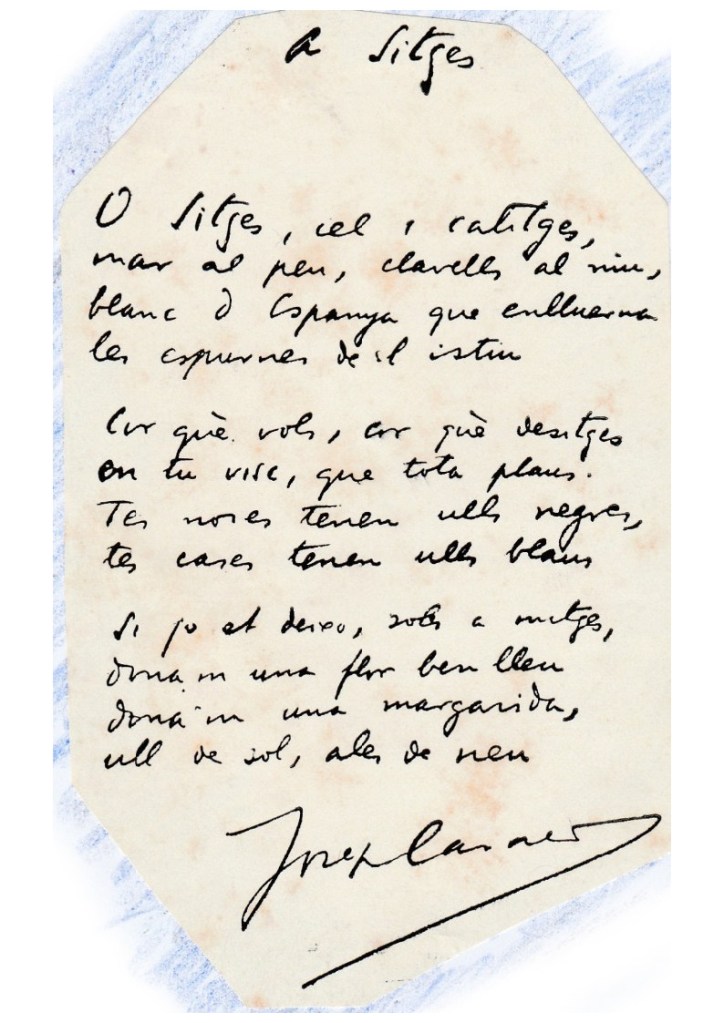 A Sitges
O Sitges, cel i calitges,
mar al peu, clavells al niu,
blanc d Espanya que enlluerna
les espurnes de l istiu
Cor què vols, cor què desitges
en tu visc, que tota plaus.
Tes noies tenen ulls negres,
tes cases tenen ulls blaus
Si jo et deixo, sols a mitges,
dona'm una flor ben lleu
dona'm una margarida,
ull de sol, ales de neu
Josep Carner